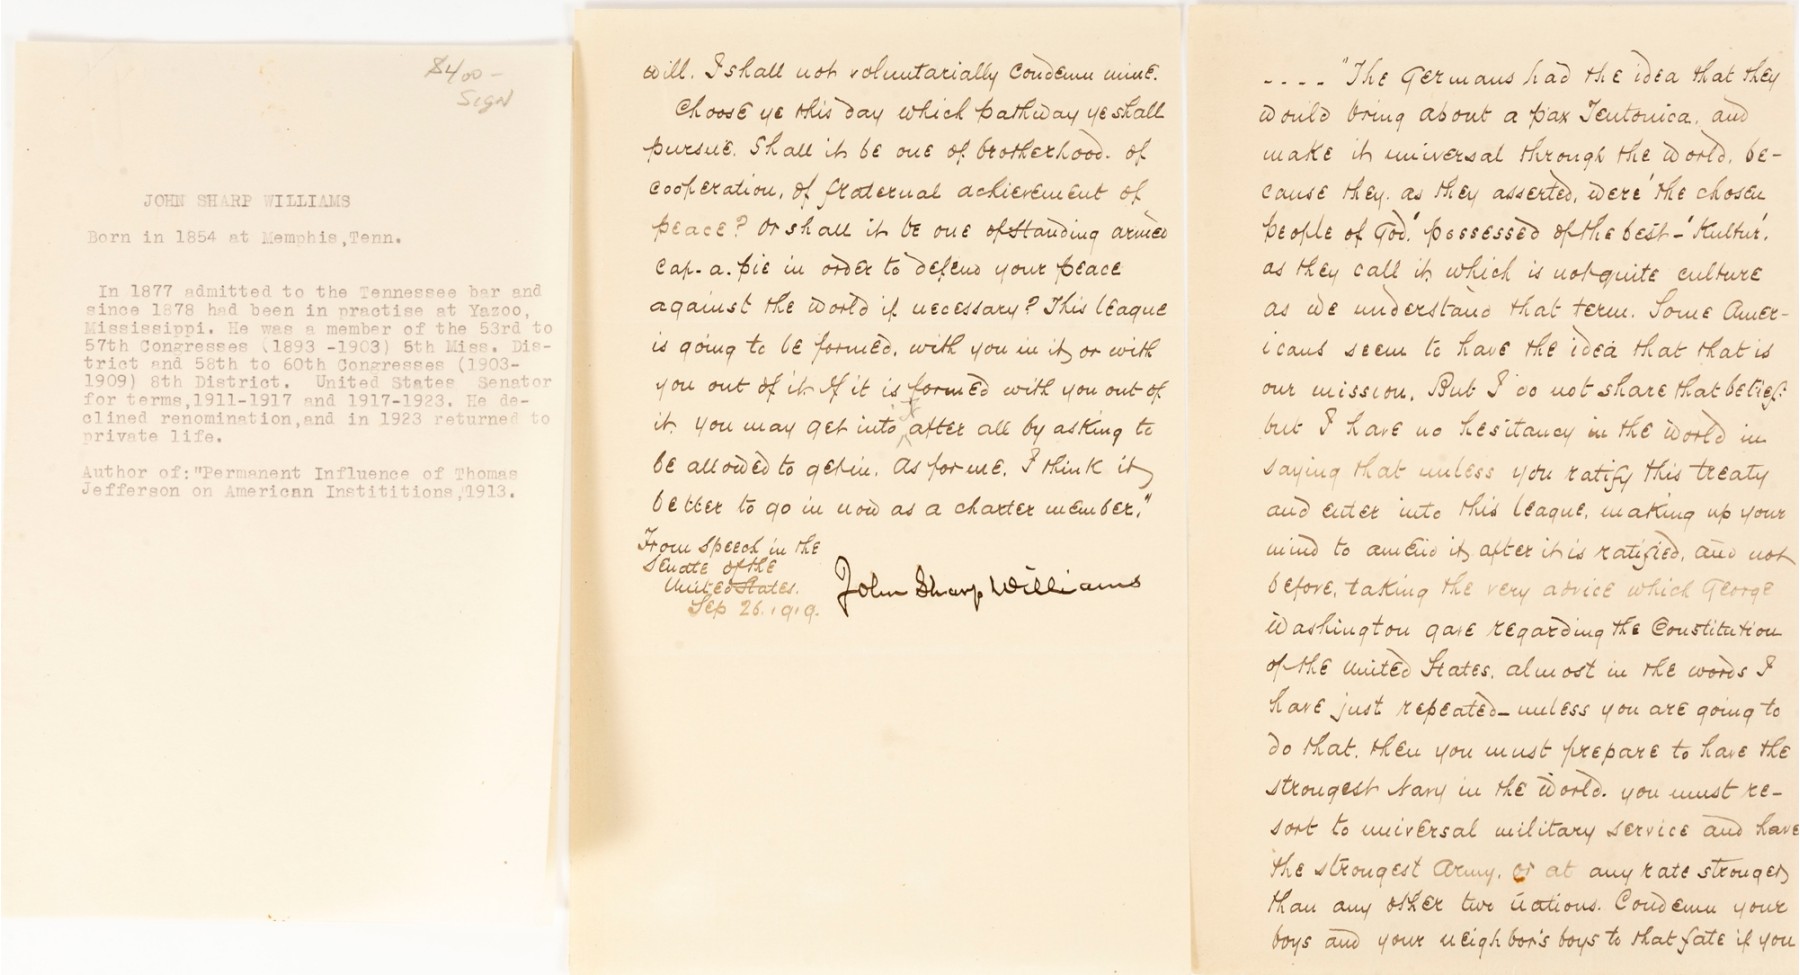 $400-
SIGN
JOHN SHARP WILLIAMS
Born in 1854 at Memphis,Tenn.
In 1877 admitted to the Tennessee bar and
since 1878 had been in practise at Yazoo,
Mississippi. He was a member of the 53rd to
57th Congresses (1893 -1903) 5th Miss. Dis-
trict and 58th to 60th Congresses (1903-
1909) 8th District. United States Senator
for terms,1911-1917 and 1917-1923. He de-
clined renomination,and in 1923 returned to
private life.
Author of:"Permanent Influence of Thomas
Jefferson on American Instititions,"1913.
will. I shall not voluntarially condemn mine.
Choose ye this day which pathway ye shall
pursue. Shall it be one of brotherhood. of
cooperation, of fraternal achievement of
peace? Or shall it be one of standing armed
cap-a-pie in order to defend your peace
against the world if necessary? This league
is going to be formed, with you in it, or with
you out of it. If it is formed with you out of
it. you may get into after all by asking to
be allowed to get in. As for me, I think it
better to go in now as a charter member."
From speech in the
Senate of the
United States.
Sep 26. 1919.
John Sharp Williams
---- "The Germans had the idea that they
would bring about a pax Teutonica, and
make it universal through the world, be-
cause they, as they asserted, were 'the chosen
people of God'. possessed of the best - 'Kultur',
as they call it, which is not quite culture
as we understand that term. Some Amer-
icans seem to have the idea that that is
our mission. But I do not share that belief:
but I have no hesitancy in the world in
saying that unless you ratify this treaty
and enter into this league, making up your
mind to amend it, after it is ratified, and not
before, taking the very advice which George
Washington gave regarding the Constitution
of the United States, almost in the words I
have just repeated - unless you are going to
do that, then you must prepare to have the
strongest Navy in the World. you must re-
sort to universal military service and have
the strongest Army, or at any rate stronger
than any other two nations. Condemn your
boys and your neighbor's boys to that fate if you